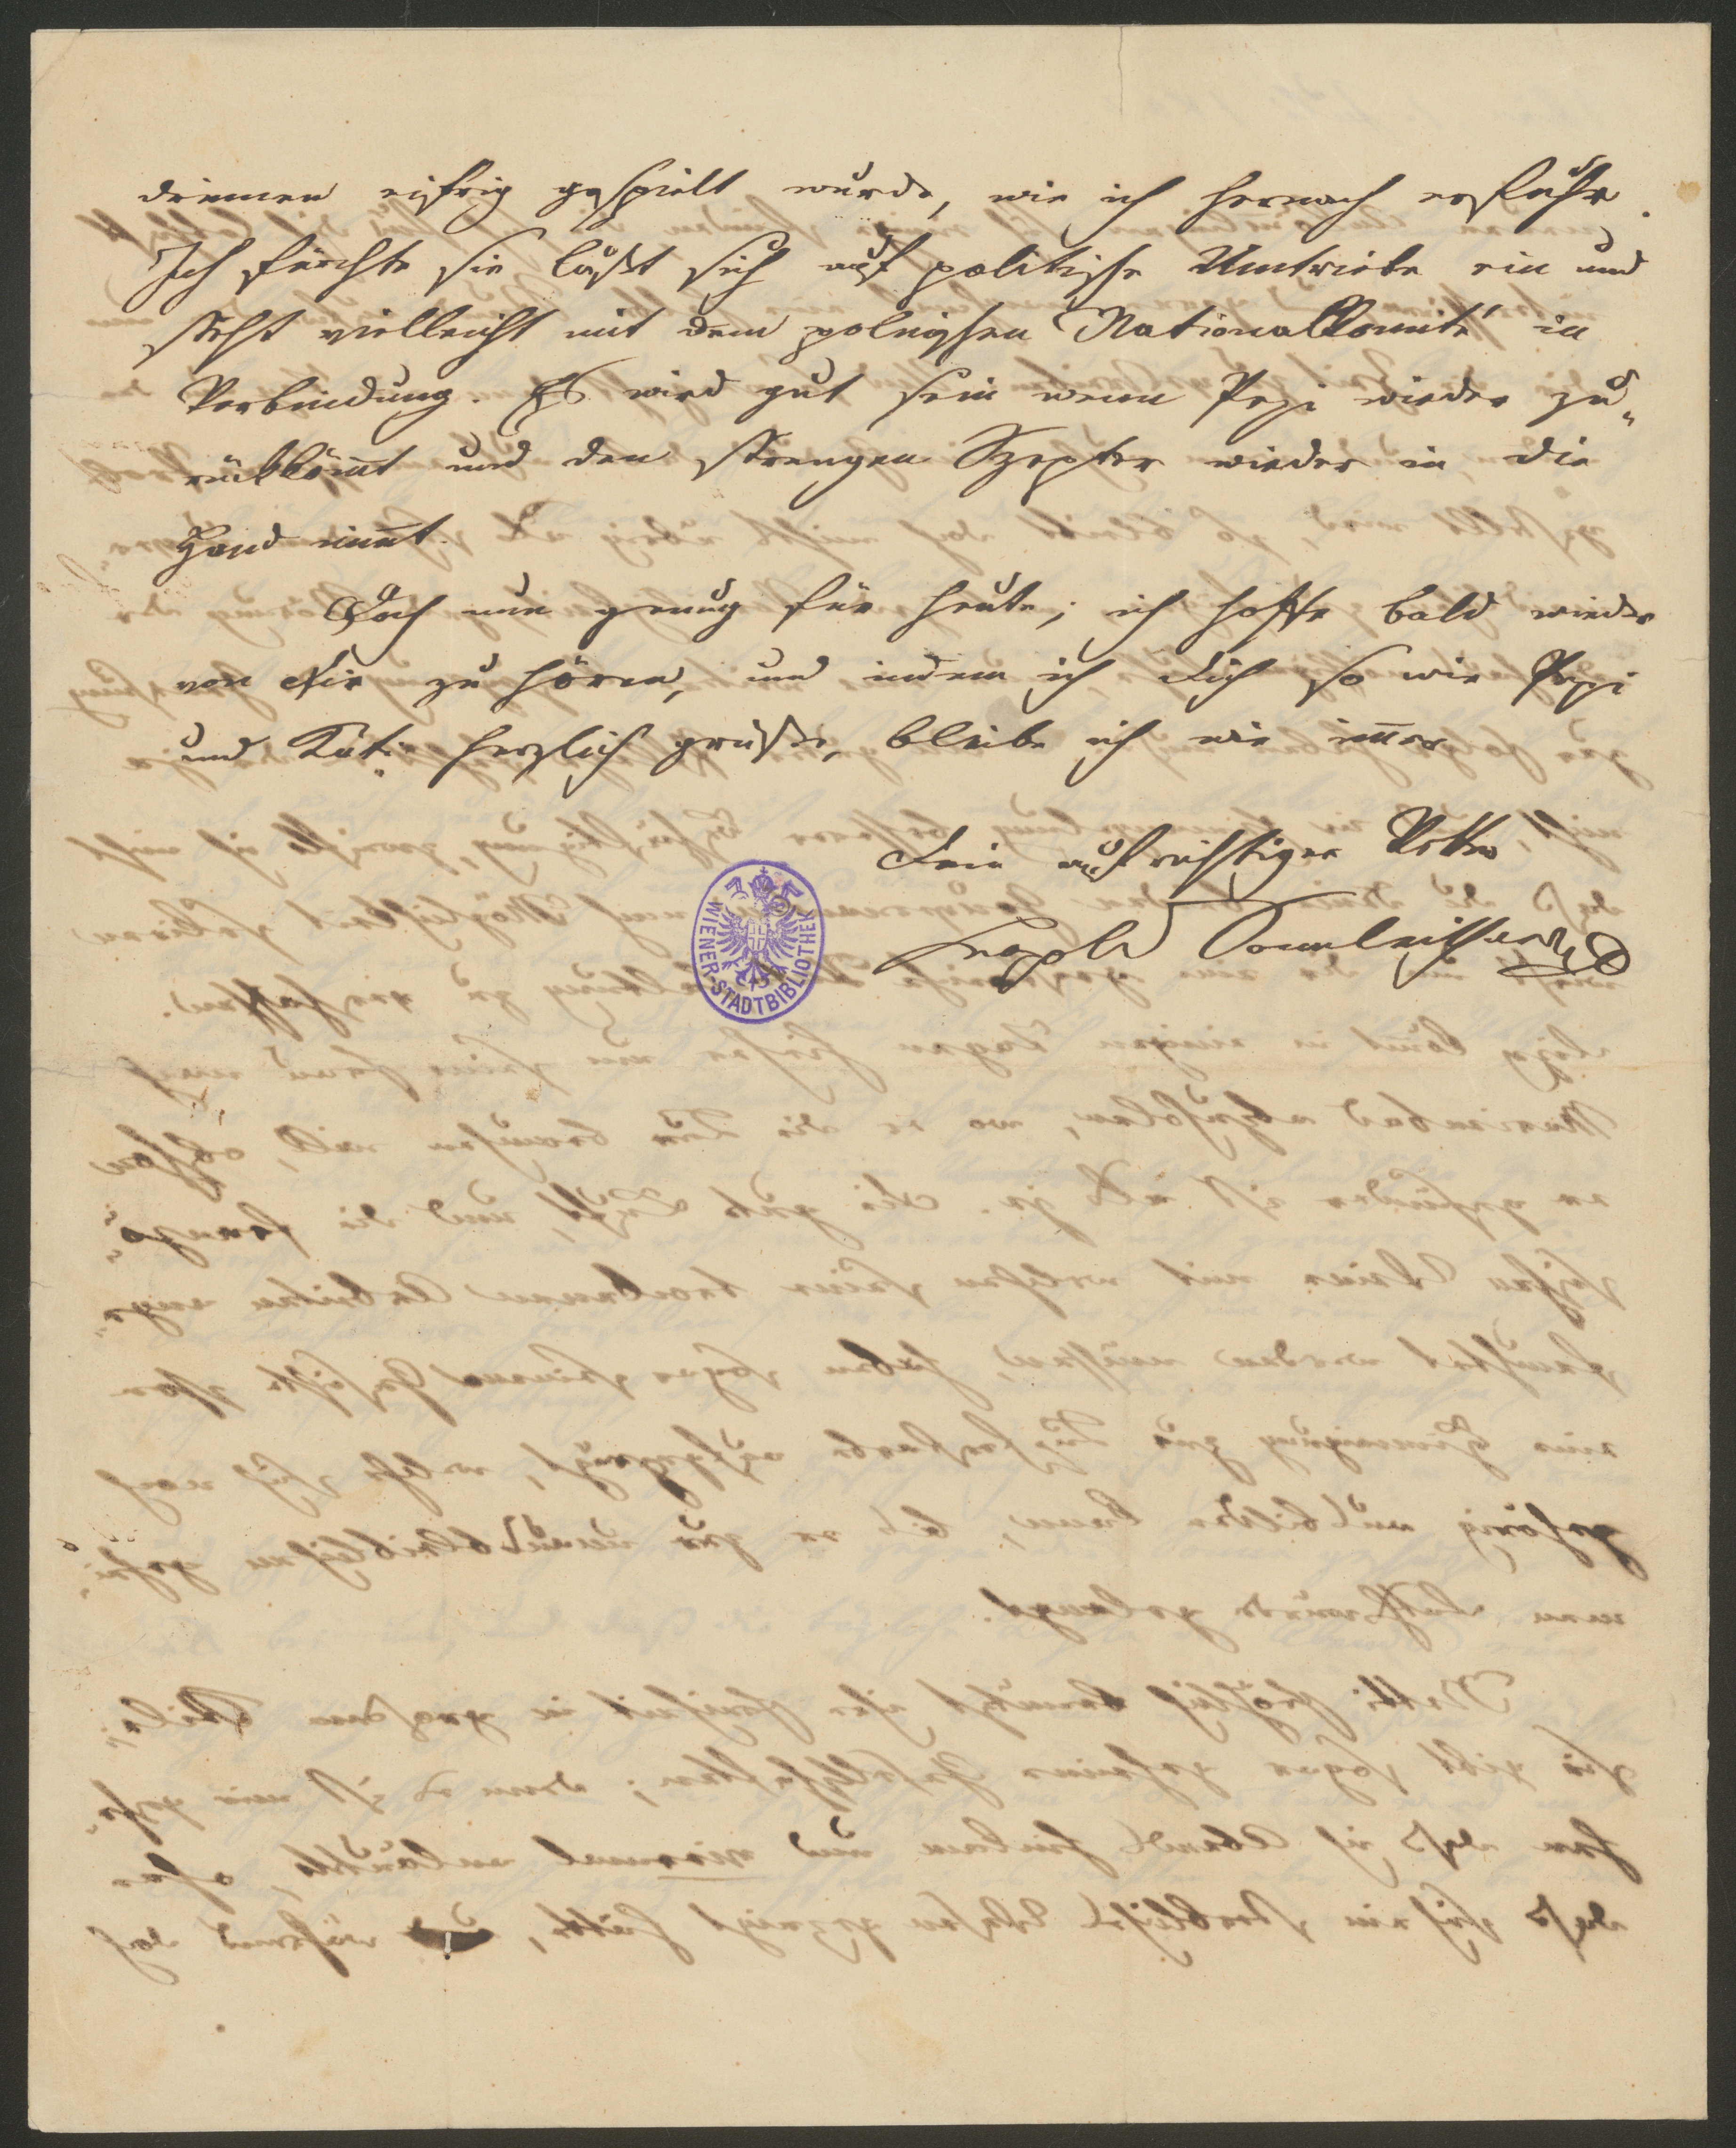 drinnen eifrig gespielt wurde, wie ich hernach erfuhr.
Ich fürchte sie läßt sich auf politische Umtriebe ein und
steht vielleicht mit dem polnischen NationalKomité in
Verbindung. Es wird gut sein wenn Pepi wieder zu„
rückköm̅t und den strengen Szepter wieder in die
Hand nim̅t.
Doch nun genug für heute; ich hoffe bald wieder
von Dir zu hören, und indem ich Dich so wie Pepi
und Kati herzlich grüße, bleibe ich wie im̅er
Dein aufrichtiger Vetter
Leopold Sonnleithner
WIENER-STADTBIBLIOTHEK